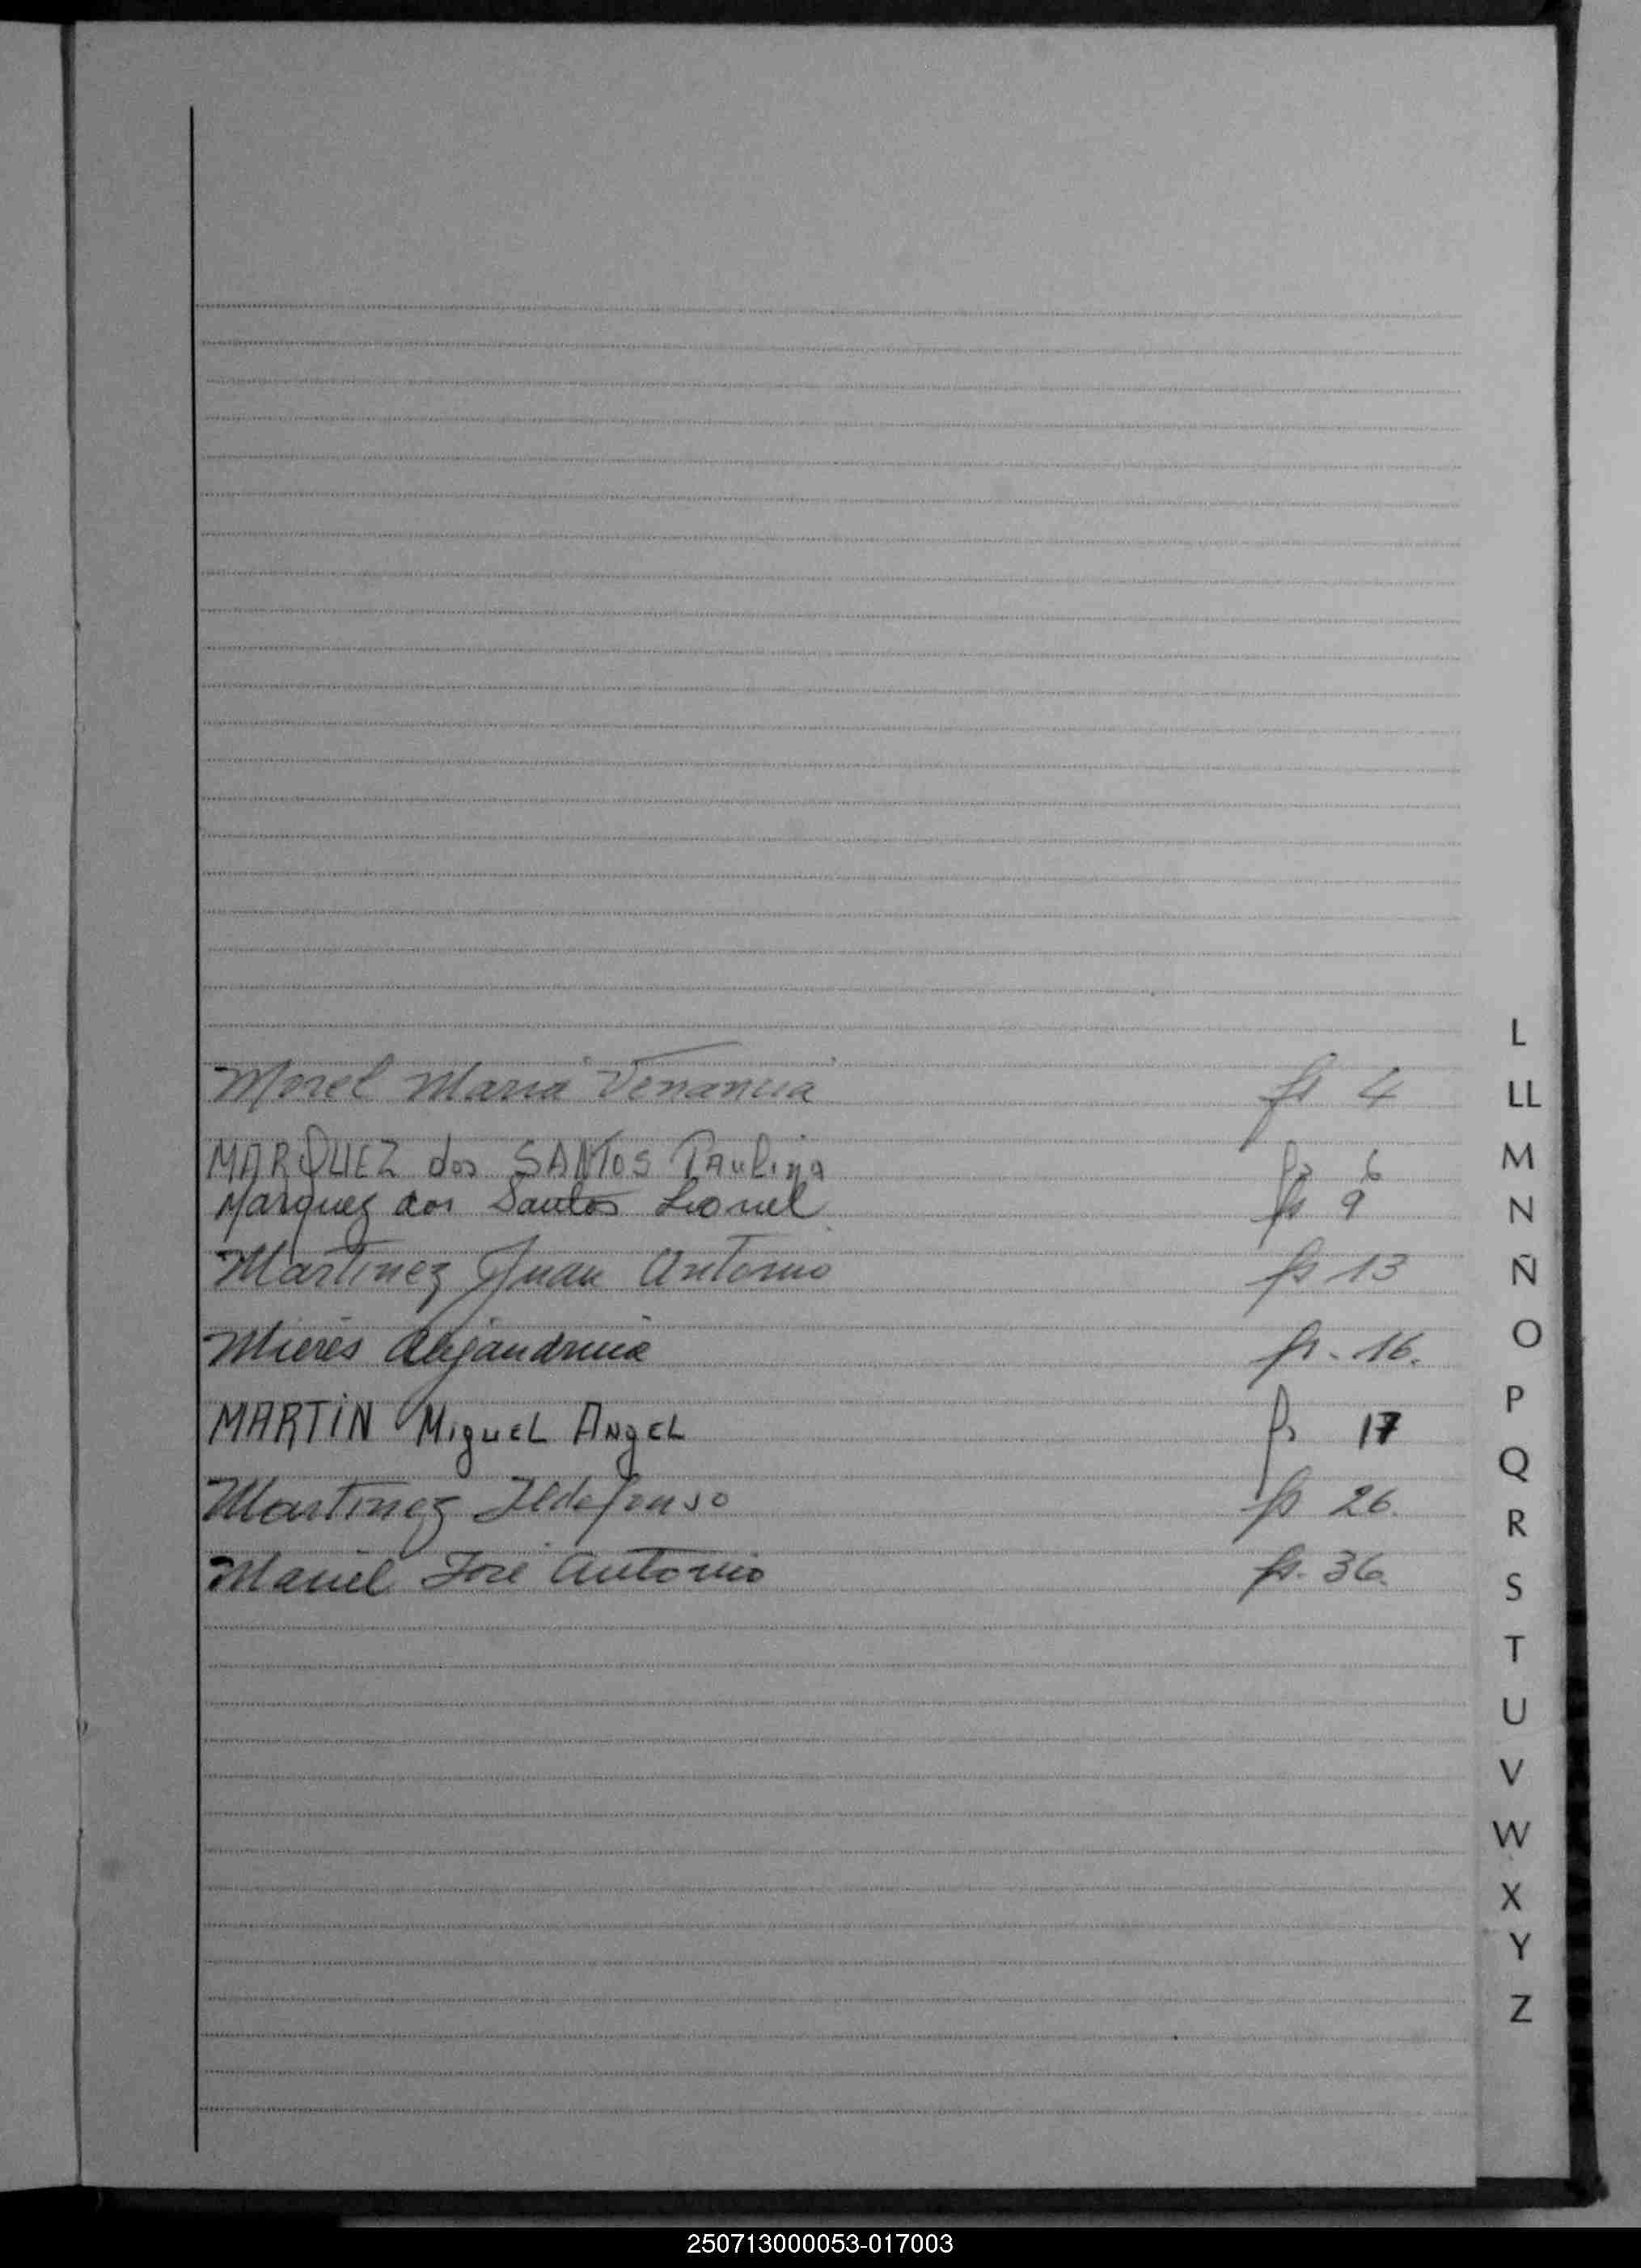 Morel Maria Venancia fs 4
MARQUEZ dos SANTOS Paulina fs 6
Marquez dos Santos Lionel fs 9
Martinez Juan Antonio fs 13
Mieres Alejandrina fs. 16.
MARTiN Miguel Angel fs 17
Martinez Ildefonso fs 26.
Maciel José Antonio fs. 36.
L
LL
M
N
Ñ
O
P
Q
R
S
T
U
V
W
X
Y
Z
250713000053-017003